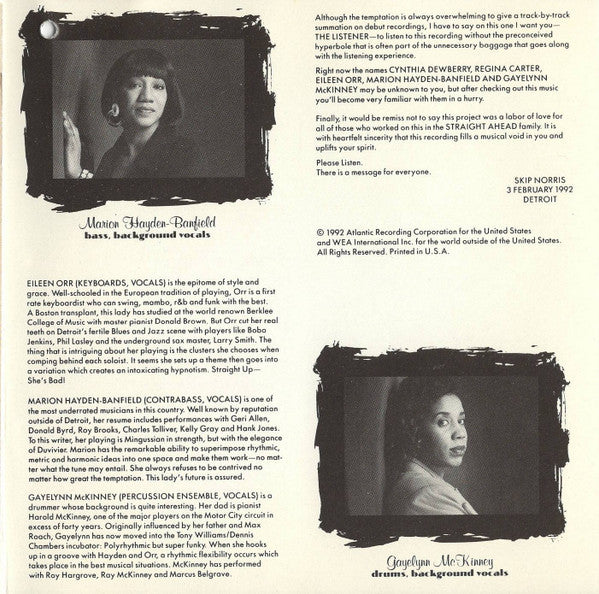 Marion Hayden-Banfield
bass, background vocals
EILEEN ORR (KEYBOARDS, VOCALS) is the epitome of style and
grace. Well-schooled in the European tradition of playing, Orr is a first
rate keyboardist who can swing, mambo, r&b and funk with the best.
A Boston transplant, this lady has studied at the world renown Berklee
College of Music with master pianist Donald Brown. But Orr cut her real
teeth on Detroit's fertile Blues and Jazz scene with players like Bobo
Jenkins, Phil Lasley and the underground sax master, Larry Smith. The
thing that is intriguing about her playing is the clusters she chooses when
comping behind each soloist. It seems she sets up a theme then goes into
a variation which creates an intoxicating hypnotism. Straight Up—
She's Bad!
MARION HAYDEN-BANFIELD (CONTRABASS, VOCALS) is one of
the most underrated musicians in this country. Well known by reputation
outside of Detroit, her resume includes performances with Geri Allen,
Donald Byrd, Roy Brooks, Charles Tolliver, Kelly Gray and Hank Jones.
To this writer, her playing is Mingussian in strength, but with the elegance
of Duvivier. Marion has the remarkable ability to superimpose rhythmic,
metric and harmonic ideas into one space and make them work—no mat-
ter what the tune may entail. She always refuses to be contrived no
matter how great the temptation. This lady's future is assured.
GAYELYNN McKINNEY (PERCUSSION ENSEMBLE, VOCALS) is a
drummer whose background is quite interesting. Her dad is pianist
Harold McKinney, one of the major players on the Motor City circuit in
excess of forty years. Originally influenced by her father and Max
Roach, Gayelynn has now moved into the Tony Williams/Dennis
Chambers incubator: Polyrhythmic but super funky. When she hooks
up in a groove with Hayden and Orr, a rhythmic flexibility occurs which
takes place in the best musical situations. McKinney has performed
with Roy Hargrove, Ray McKinney and Marcus Belgrave.
Although the temptation is always overwhelming to give a track-by-track
summation on debut recordings, I have to say on this one I want you—
THE LISTENER—to listen to this recording without the preconceived
hyperbole that is often part of the unnecessary baggage that goes along
with the listening experience.
Right now the names CYNTHIA DEWBERRY, REGINA CARTER,
EILEEN ORR, MARION HAYDEN-BANFIELD AND GAYELYNN
McKINNEY may be unknown to you, but after checking out this music
you'll become very familiar with them in a hurry.
Finally, it would be remiss not to say this project was a labor of love for
all of those who worked on this in the STRAIGHT AHEAD family. It is
with heartfelt sincerity that this recording fills a musical void in you and
uplifts your spirit.
Please Listen.
There is a message for everyone.
SKIP NORRIS
3 FEBRUARY 1992
DETROIT
© 1992 Atlantic Recording Corporation for the United States
and WEA International Inc. for the world outside of the United States.
All Rights Reserved. Printed in U.S.A.
Gayelynn McKinney
drums, background vocals